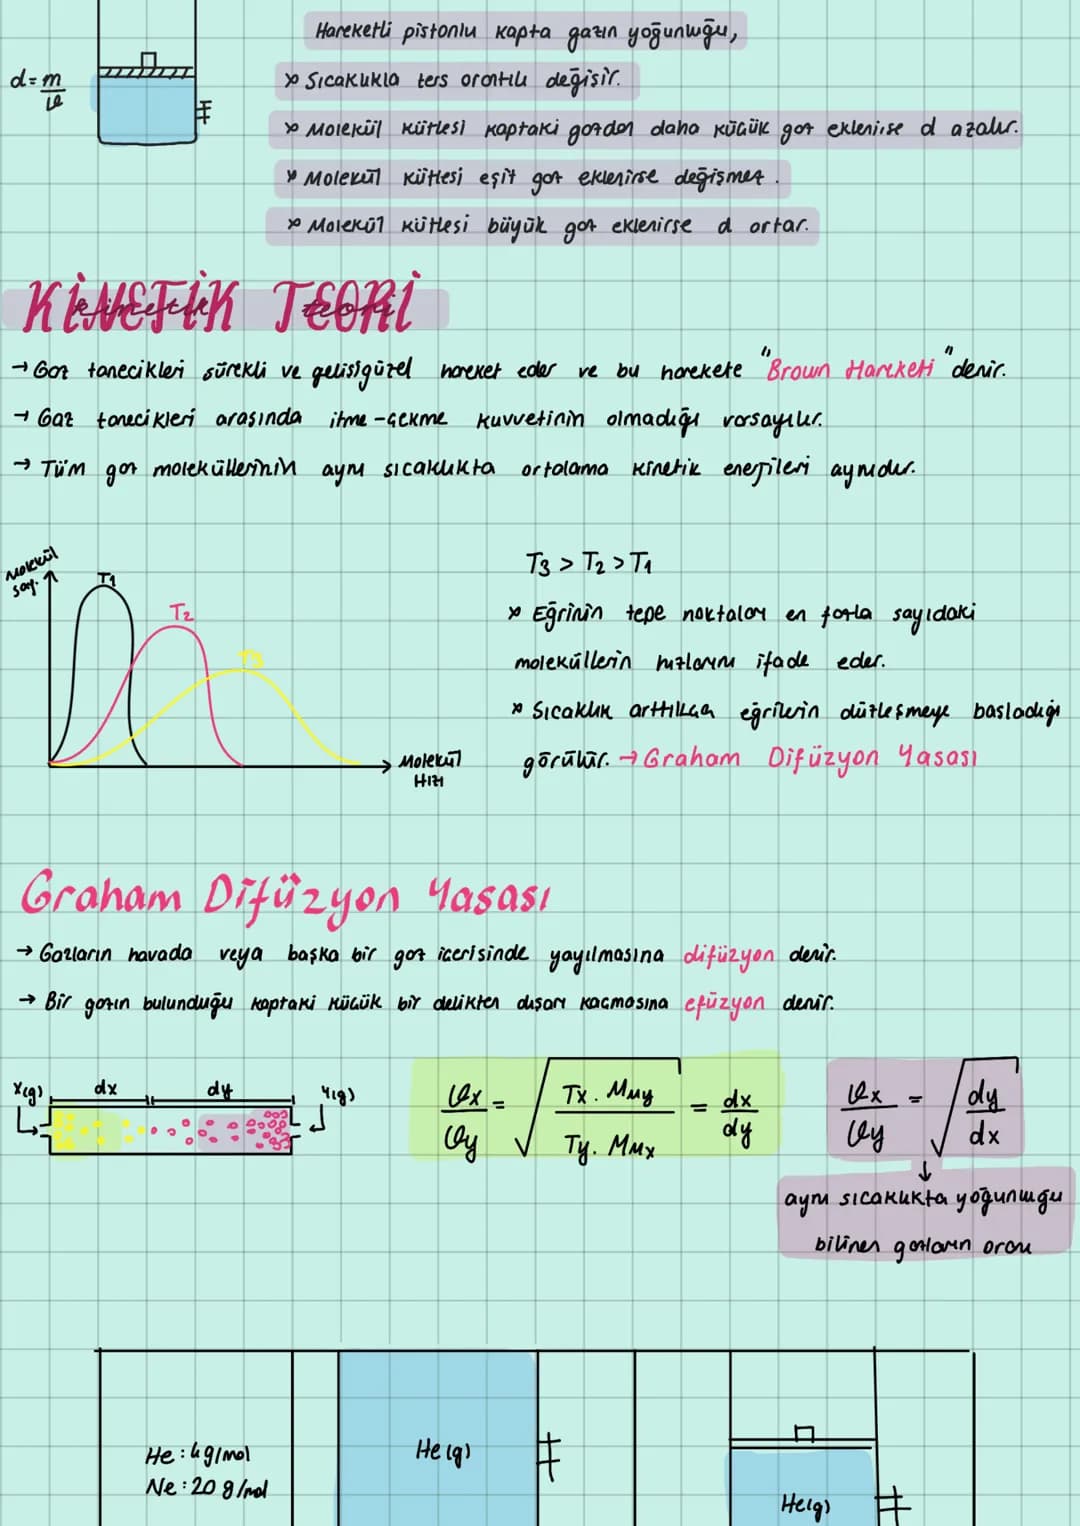 Hareketli pistonlu kapta gazın yoğunluğu,
d = m/V
× Sıcaklıkla ters orantılı değişir.
× Molekül kütlesi kaptaki gazdan daha küçük gaz eklenirse d azalır.
× Molekül kütlesi eşit gaz eklenirse değişmez.
× Molekül kütlesi büyük gaz eklenirse d artar.
KİNETİK TEORİ
kinetik teori
→ Gaz tanecikleri sürekli ve gelişigüzel hareket eder ve bu harekete "Brown Hareketi" denir.
→ Gaz tanecikleri arasında itme-çekme kuvvetinin olmadığı varsayılır.
→ Tüm gaz moleküllerinin aynı sıcaklıkta ortalama kinetik enerjileri aynıdır.
Molekül
say.
T1
T2
T3
Molekül
Hızı
T3 > T2 > T1
× Eğrinin tepe noktaları en fazla sayıdaki
moleküllerin hızlarını ifade eder.
× Sıcaklık arttıkça eğrilerin düzleşmeye başladığı
görülür. → Graham Difüzyon Yasası
Graham Difüzyon Yasası
→ Gazların havada veya başka bir gaz icerisinde yayılmasına difüzyon denir.
→ Bir gazın bulunduğu kaptaki küçük bir delikten dışarı kaçmasına efüzyon denir.
X(g) dx dy Y(g)
Vx/Vy = √(Tx . MMy / Ty . MMx) = dx/dy
Vx/Vy = √(dy/dx)
aynı sıcaklıkta yoğunluğu
bilinen gazların oranı
He : 4 g/mol
Ne : 20 g/mol
He (g)
He(g)